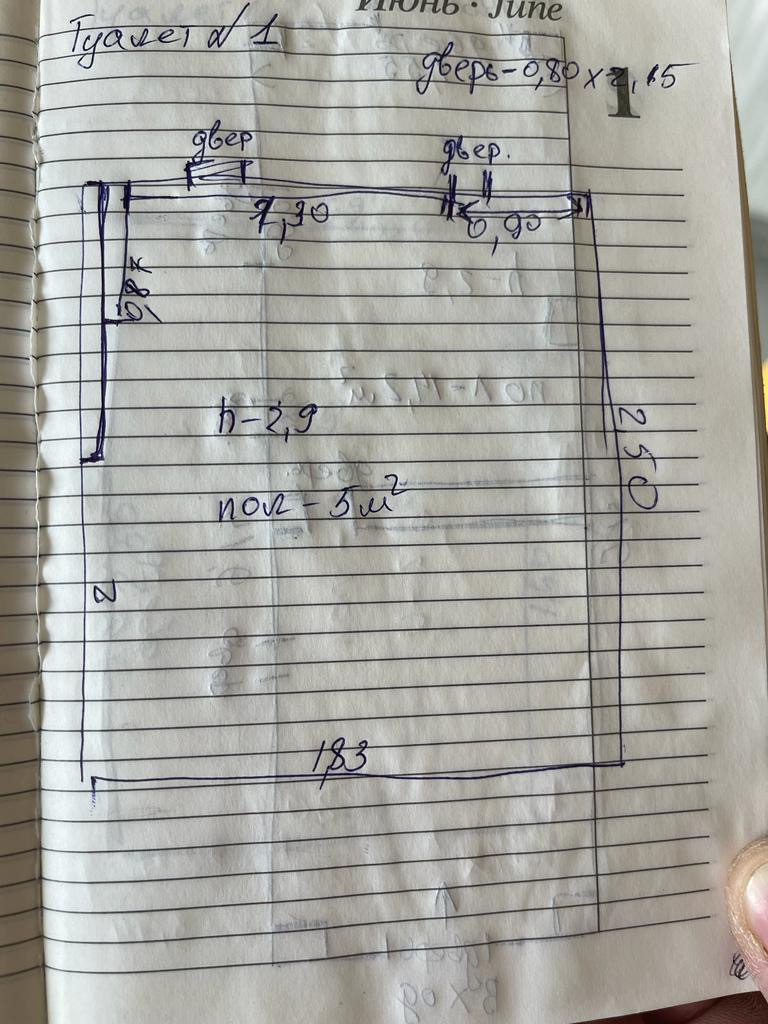 Июнь · June
1
Туалет № 1
дверь-0,80 х 2,15
двер
двер.
1,30
0,90
0,87
h-2,9
250
пол - 5 м²
2
1,83